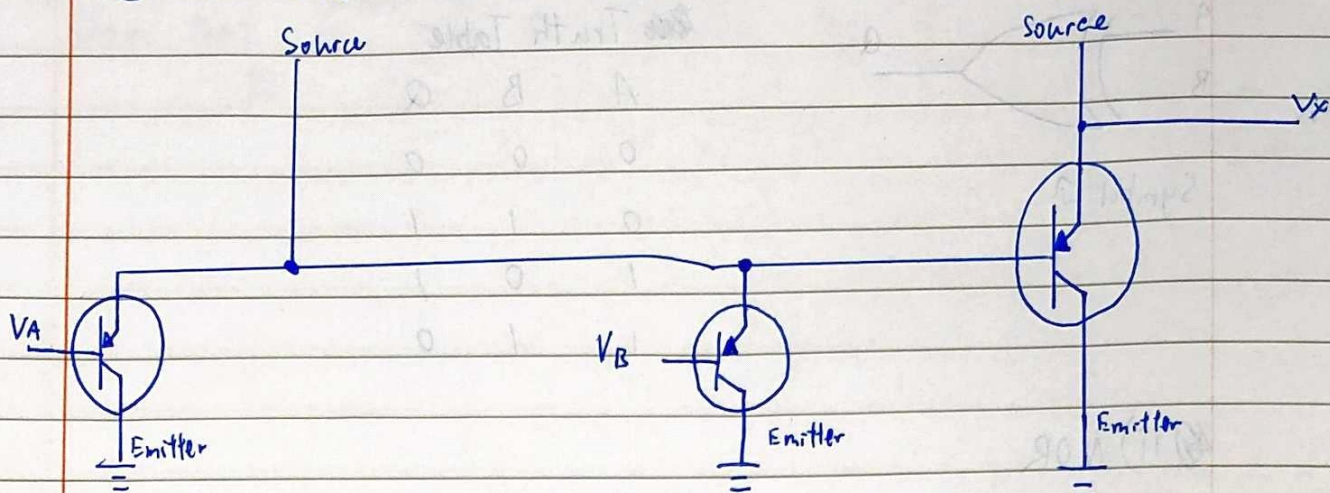 Source
Source
Vx
VA
VB
Emitter
Emitter
Emitter